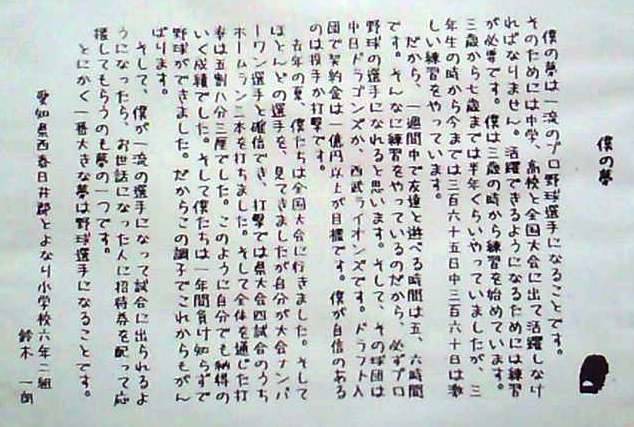 僕の夢
僕の夢は一流のプロ野球選手になることです。
そのためには中学、高校と全国大会に出て活躍しなけ
ればなりません。活躍できるようになるためには練習
が必要です。僕は三歳の時から練習を始めています。
三歳から七歳までは半年くらいやっていましたが、三
年生の時から今までは三百六十五日中三百六十日は激
しい練習をやっています。
だから、一週間中で友達と遊べる時間は五、六時間
です。そんなに練習をやっているのだから、必ずプロ
野球の選手になれると思います。そして、その球団は
中日ドラゴンズか、西武ライオンズです。ドラフト入
団で契約金は一億円以上が目標です。僕が自信のある
のは投手か打撃です。
去年の夏、僕たちは全国大会に行きました。そして
ほとんどの選手を、見てきましたが自分が大会ナンバ
ーワン選手と確信でき、打撃では県大会四試合のうち
ホームラン二本を打ちました。そして全体を通じた打
率は五割八分三厘でした。このように自分でも納得の
いく成績でした。そして僕たちは一年間負け知らずで
野球ができました。だからこの調子でこれからもがん
ばります。
そして、僕が一流の選手になって試会に出られるよ
うになったら、お世話になった人に招待券を配って応
援してもらうのも夢の一つです。
とにかく一番大きな夢は野球選手になることです。
愛知県西春日井郡とよなり小学校六年二組
鈴木 一朗